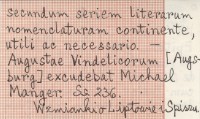 secundum seriem literarum
nomenclaturam continente,
utili ac necessario. —
Augustae Vindelicorum [Augs-
burg] excudebat Michael
Manger. Ss 236.
Wzmianki o Liptowie i Spiszu.